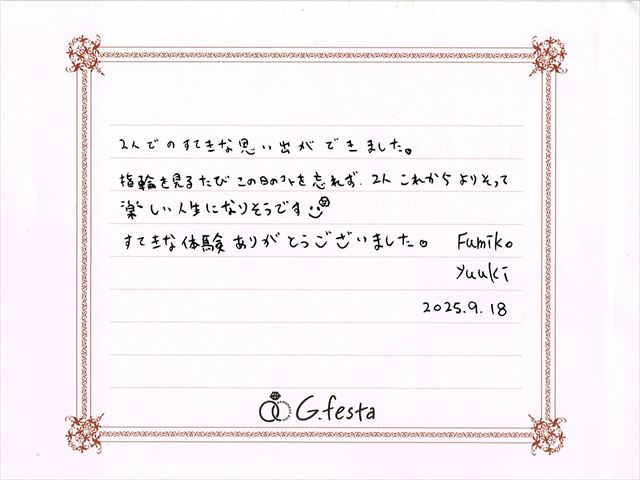 2人でのすてきな思い出ができました。
指輪を見るたびこの日のコトを忘れず、2人これからよりそって
楽しい人生になりそうです
すてきな体験ありがとうございました。 Fumiko
Yuuki
2025.9.18
G.festa